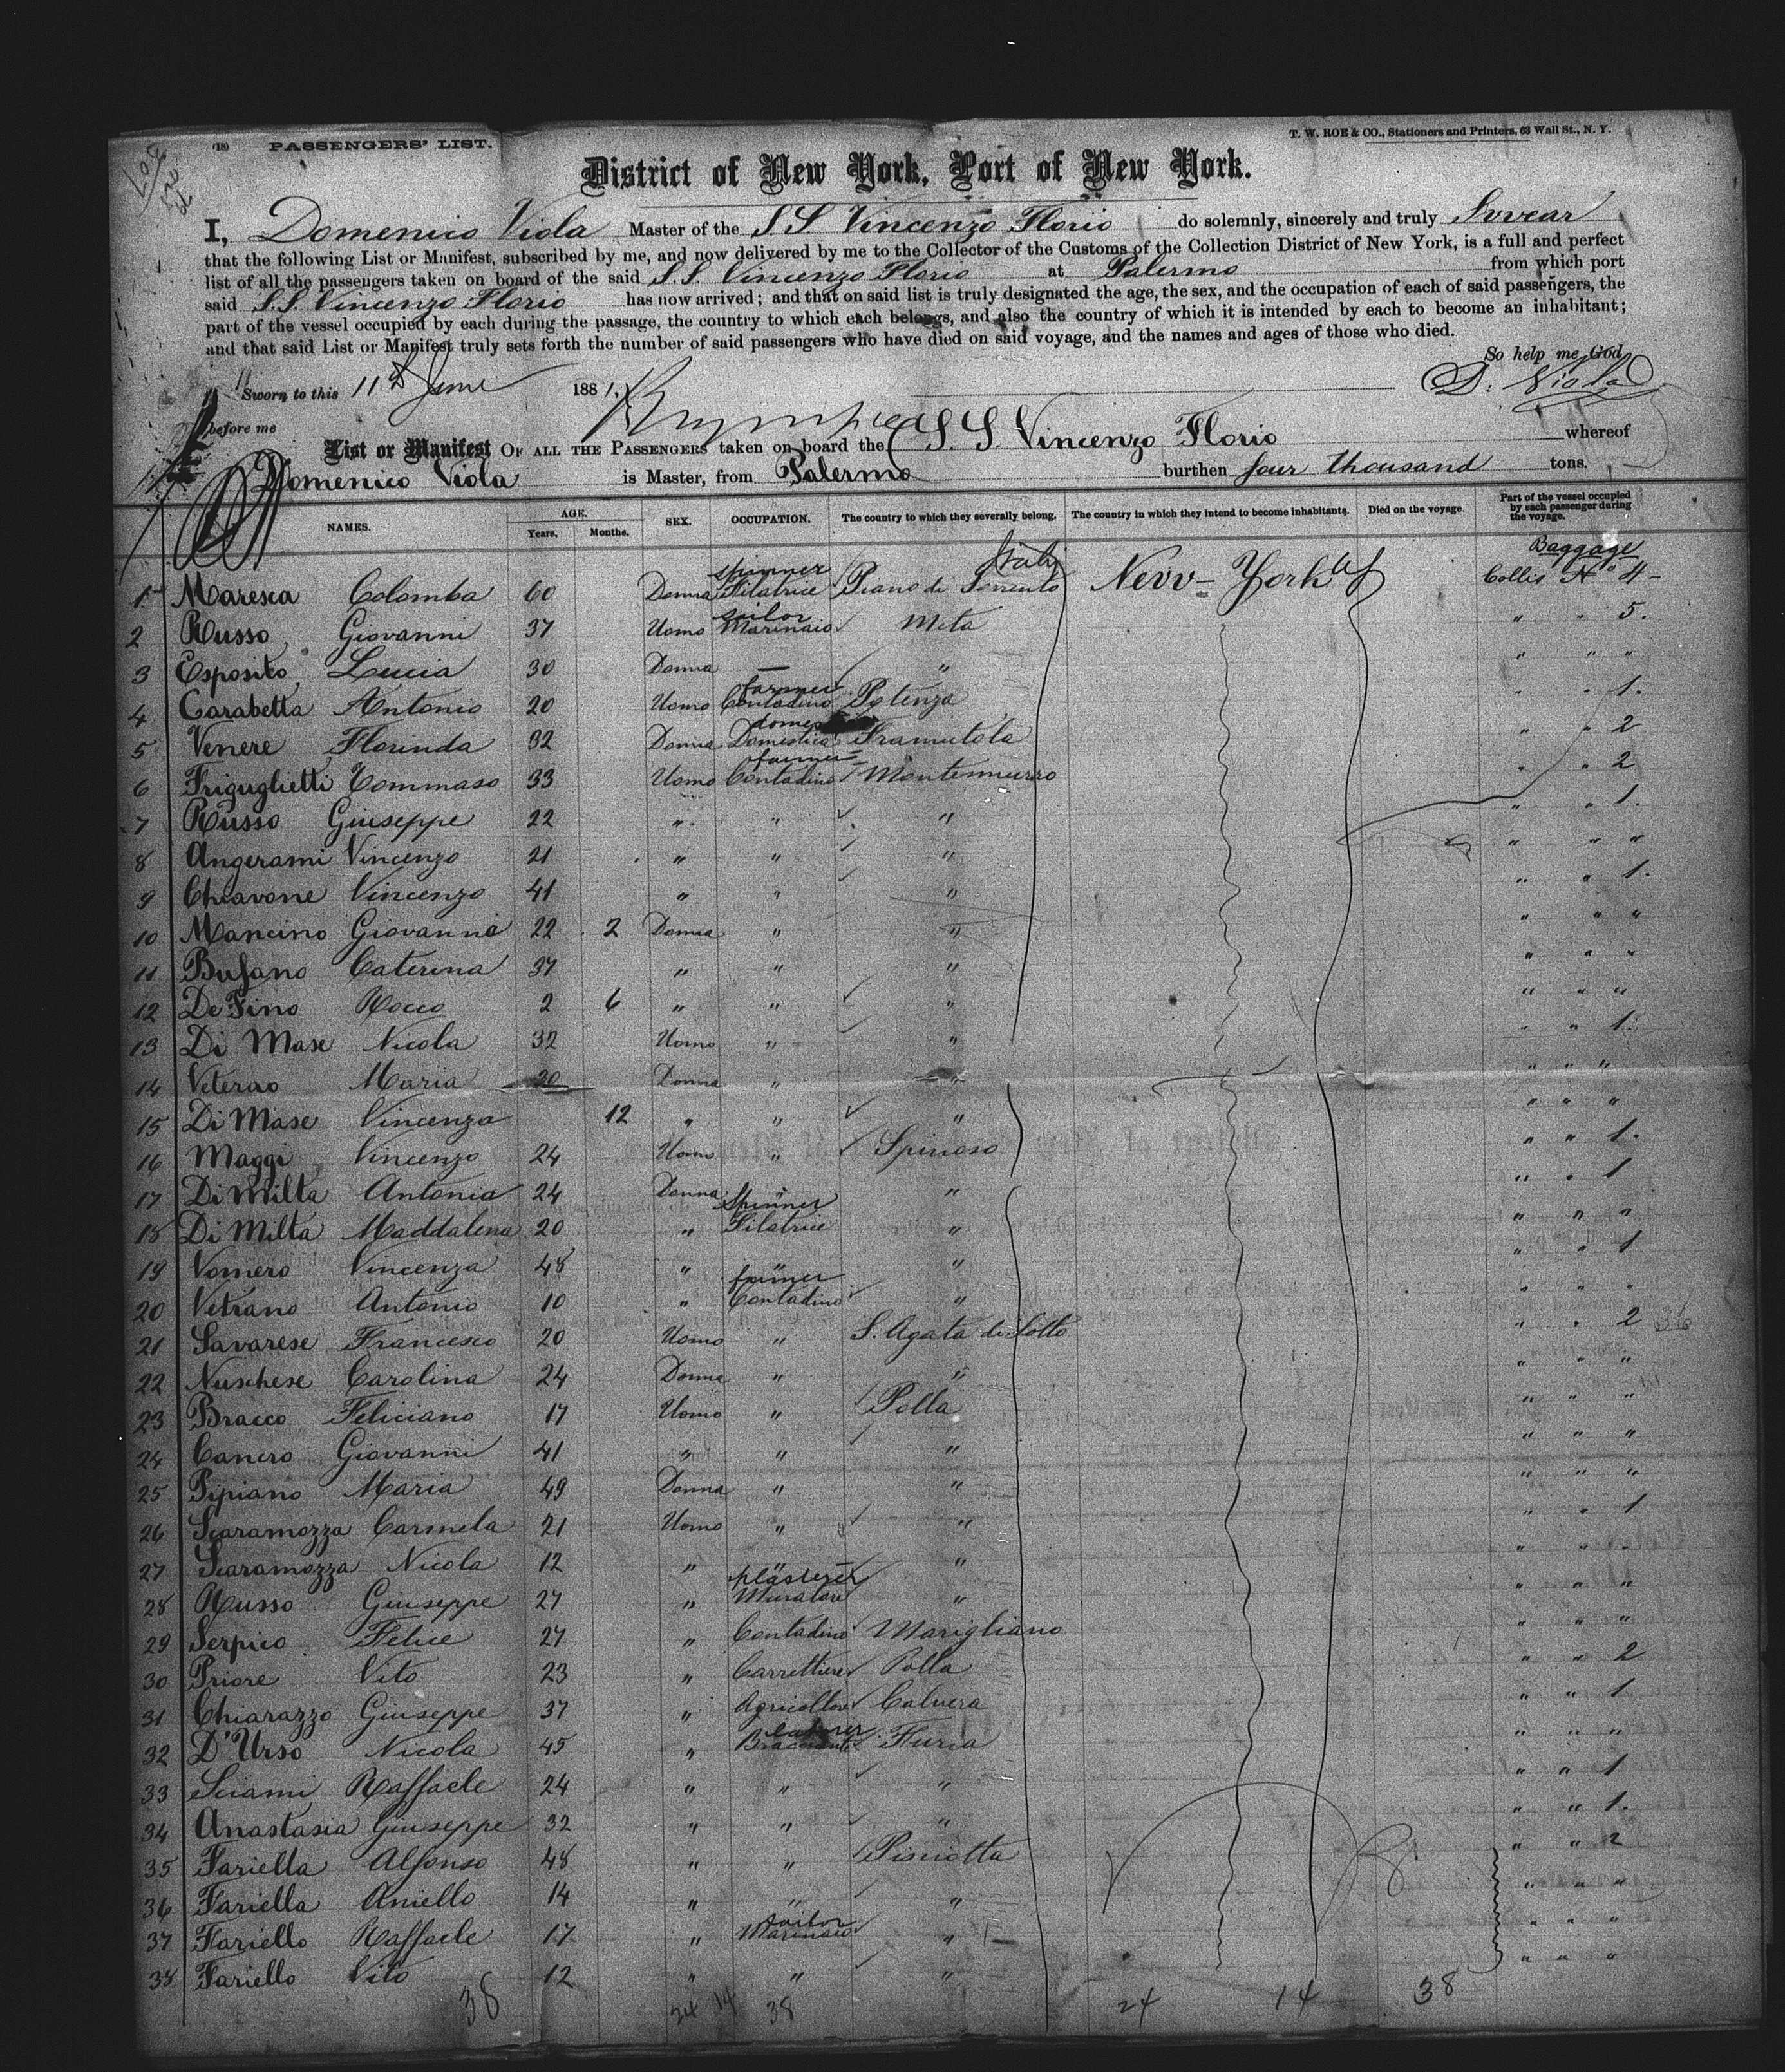 (18) PASSENGERS' LIST.
T. W. ROE & CO., Stationers and Printers, 63 Wall St., N. Y.
District of New York, Port of New York.
I, Domenico Viola Master of the S S Vincenzo Florio do solemnly, sincerely and truly Swear
that the following List or Manifest, subscribed by me, and now delivered by me to the Collector of the Customs of the Collection District of New York, is a full and perfect
list of all the passengers taken on board of the said S.S. Vincenzo Florio at Palermo from which port
said S.S. Vincenzo Florio has now arrived; and that on said list is truly designated the age, the sex, and the occupation of each of said passengers, the
part of the vessel occupied by each during the passage, the country to which each belongs, and also the country of which it is intended by each to become an inhabitant;
and that said List or Manifest truly sets forth the number of said passengers who have died on said voyage, and the names and ages of those who died.
So help me God
Sworn to this 11th June 1881, D. Viola
before me
List or Manifest OF ALL THE PASSENGERS taken on board the S. S. Vincenzo Florio whereof
Domenico Viola is Master, from Palermo burthen four thousand tons.
NAMES. AGE. Years. Months. SEX. OCCUPATION. The country to which they severally belong. The country in which they intend to become inhabitants. Died on the voyage. Part of the vessel occupied by each passenger during the voyage.
spinner Italy Baggage
1 Maresca Colomba 60 Donna Filatrice Piano di Sorrento New-York Collis No 4-
sailor
2 Russo Giovanni 37 Uomo Marinaio Meta " " 5.
3 Esposito Lucia 30 Donna — " " " "
farmer
4 Carabetta Antonio 20 Uomo Contadino Potenza " " 1.
5 Venere Florinda 32 Donna Domestica Tramutola " " 2
farmer
6 Friguglietti Tommaso 33 Uomo Contadino Montemurro " " 2
7 Russo Giuseppe 22 " " " " " 1.
8 Angerami Vincenzo 21 " " " " " "
9 Chiavone Vincenzo 41 " " " " " 1.
10 Mancino Giovanna 22 2 Donna " " " " "
11 Bufano Caterina 37 " " " " " "
12 De Fino Rocco 2 6 " " " " " "
13 Di Mase Nicola 32 Uomo " " " " 1.
14 Veterao Maria 20 Donna " " " " "
15 Di Mase Vincenza 12 " " " " " "
16 Maggi Vincenzo 24 Uomo " Spinoso " " 1.
17 Di Milta Antonia 24 Donna " " " " 1
spinner
18 Di Milta Maddalena 20 " Filatrice " " " "
19 Vomero Vincenza 48 " " " " " 1
farmer
20 Vetrano Antonio 10 " Contadino " " " "
21 Savarese Francesco 20 Uomo " S. Agata di Sotto " " 2 36
22 Nuschese Carolina 24 Donna " " " " "
23 Bracco Feliciano 17 Uomo " Polla " " "
24 Canero Giovanni 41 " " " " " "
25 Pipiano Maria 49 Donna " " " " "
26 Scaramozza Carmela 21 Uomo " " " " 1
27 Scaramozza Nicola 12 " " " " " "
plasterer
28 Russo Giuseppe 27 " Muratore " " " "
29 Serpico Felice 27 " Contadino Marigliano " " "
30 Priore Vito 23 " Carrettiere Polla " " 2
31 Chiarazzo Giuseppe 37 " Agricoltore Calvera " " 1
32 D'Urso Nicola 45 " Bracciante Furia " " "
33 Sciami Raffaele 24 " " " " " 1
34 Anastasia Giuseppe 32 " " " " " 1.
35 Fariella Alfonso 48 " " Pisciotta " " 2
36 Fariella Aniello 14 " " " " " "
sailor
37 Fariello Raffaele 17 " Marinaio " " " "
38 Fariello Vito 12 " " " " " "
38 24 14 38 24 14 38